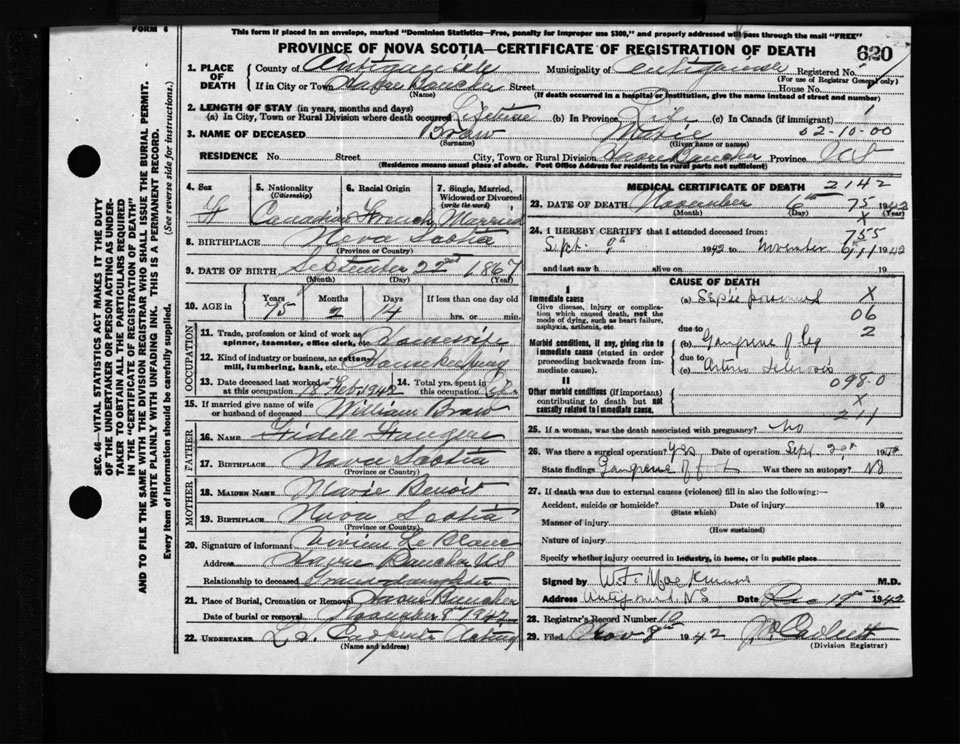 FORM 6
This form if placed in an envelope, marked "Dominion Statistics—Free, penalty for improper use $300," and properly addressed will pass through the mail "FREE"
PROVINCE OF NOVA SCOTIA—CERTIFICATE OF REGISTRATION OF DEATH 620
1. PLACE OF DEATH County of Antigonish Municipality of Antigonish Registered No.
(For use of Registrar General only)
If in City or Town Havre Boucher Street House No.
(Name) (If death occurred in a hospital or institution, give the name instead of street and number)
2. LENGTH OF STAY (in years, months and days)
(a) In City, Town or Rural Division where death occurred Lifetime (b) In Province Life (c) In Canada (if immigrant)
3. NAME OF DECEASED Braw Marie 02-10-00
(Surname) (Given name or names)
RESIDENCE No. Street City, Town or Rural Division Havre Boucher Province NS
(Residence means usual place of abode. Post Office Address for residents in rural parts not sufficient)
4. Sex F
5. Nationality (Citizenship) Canadian
6. Racial Origin French
7. Single, Married, Widowed or Divorced (write the word) Married
8. BIRTHPLACE Nova Scotia
(Province or Country)
9. DATE OF BIRTH September 22nd 1867
(Month) (Day) (Year)
10. AGE in Years Months Days If less than one day old
75 2 14 hrs. or min.
OCCUPATION
11. Trade, profession or kind of work as spinner, teamster, office clerk, etc. Housewife
12. Kind of industry or business, as cotton mill, lumbering, bank, etc. Housekeeping
13. Date deceased last worked at this occupation 1942
14. Total yrs. spent in this occupation
15. If married give name of wife or husband of deceased William Braw
FATHER
16. NAME
17. BIRTHPLACE Nova Scotia
(Province or Country)
MOTHER
18. MAIDEN NAME Marie Benoit
19. BIRTHPLACE Nova Scotia
(Province or Country)
20. Signature of informant Vivian LeBlanc
Address Havre Boucher NS
Relationship to deceased Grand daughter
21. Place of Burial, Cremation or Removal Havre Boucher
Date of burial or removal November 8th 1942
22. UNDERTAKER
(Name and address)
MEDICAL CERTIFICATE OF DEATH 2142
23. DATE OF DEATH November 6th 1942
(Month) (Day) (Year)
24. I HEREBY CERTIFY that I attended deceased from: 755
Sept. 9th 1942 to November 6 1942
and last saw h alive on 19
CAUSE OF DEATH
I
Immediate cause (a) X
Give disease, injury or complication which caused death, not the mode of dying, such as heart failure, asphyxia, asthenia, etc. 06
due to 2
Morbid conditions, if any, giving rise to immediate cause (stated in order proceeding backwards from immediate cause). (b) Gangrene of leg
due to
(c) Arterio Sclerosis
II 098-0
Other morbid conditions (if important) contributing to death but not causally related to immediate cause. X
211
25. If a woman, was the death associated with pregnancy? No
26. Was there a surgical operation? Yes Date of operation Sept. 19
State findings Gangrene of foot Was there an autopsy? No
27. If death was due to external causes (violence) fill in also the following:—
Accident, suicide or homicide? Date of injury 19
(State which)
Manner of injury
(How sustained)
Nature of injury
Specify whether injury occurred in industry, in home, or in public place
Signed by W.F. MacKinnon M.D.
Address Antigonish, NS Date Dec 1942
28. Registrar's Record Number
29. Filed Nov 8th 1942
(Division Registrar)
SEC. 46—VITAL STATISTICS ACT MAKES IT THE DUTY OF THE UNDERTAKER OR PERSON ACTING AS UNDERTAKER TO OBTAIN ALL THE PARTICULARS REQUIRED IN THE "CERTIFICATE OF REGISTRATION OF DEATH" AND TO FILE THE SAME WITH THE DIVISION REGISTRAR WHO SHALL ISSUE THE BURIAL PERMIT.
WRITE PLAINLY WITH UNFADING INK. THIS IS A PERMANENT RECORD.
Every item of information should be carefully supplied. (See reverse side for instructions.)